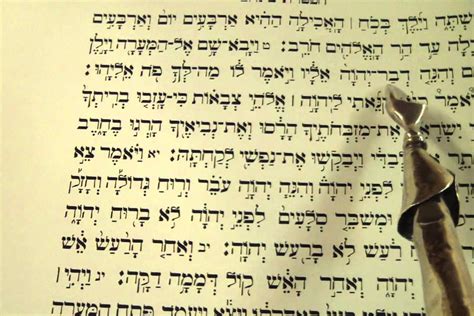 וַיֵּלֶךְ בְּכֹחַ ׀ הָאֲכִילָה הַהִיא אַרְבָּעִים יוֹם וְאַרְבָּעִים
עַד הַר הָאֱלֹהִים חֹרֵב: ט וַיָּבֹא־שָׁם אֶל־הַמְּעָרָה וַיָּלֶן
וְהִנֵּה דְבַר־יְהוָה אֵלָיו וַיֹּאמֶר לוֹ מַה־לְּךָ פֹה אֵלִיָּהוּ:
קִנֵּאתִי לַיהוָה ׀ אֱלֹהֵי צְבָאוֹת כִּי־עָזְבוּ בְרִיתְךָ
יִשְׂרָאֵל אֶת־מִזְבְּחֹתֶיךָ הָרָסוּ וְאֶת־נְבִיאֶיךָ הָרְגוּ בֶחָרֶב
לְבַדִּי וַיְבַקְשׁוּ אֶת־נַפְשִׁי לְקַחְתָּהּ: יא וַיֹּאמֶר צֵא
יְהוָה וְהִנֵּה יְהוָה עֹבֵר וְרוּחַ גְּדוֹלָה וְחָזָק
וּמְשַׁבֵּר סְלָעִים לִפְנֵי יְהוָה לֹא בָרוּחַ יְהוָה
רַעַשׁ לֹא בָרַעַשׁ יְהוָה: יב וְאַחַר הָרַעַשׁ אֵשׁ
יְהוָה וְאַחַר הָאֵשׁ קוֹל דְּמָמָה דַקָּה: יג וַיְהִי ׀
וַיֵּצֵא וַיַּעֲמֹד פֶּתַח הַמְּעָרָה